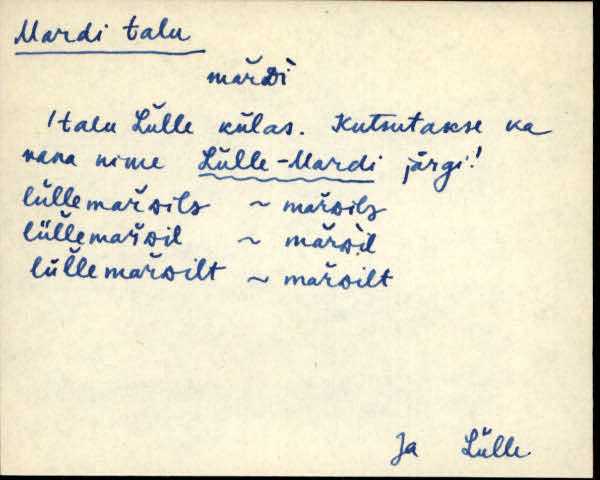 Mardi talu
mar̆Di
/talu Lülle külas. Kutsutakse ka
vana nime Lülle-Mardi järgi!
lüllemar̆Dilʒ ~ mar̆Dilʒ
lüllemar̆Dil ~ mar̆Dil
lüllemar̆Dilt ~ mar̆Dilt
Ja Lülle